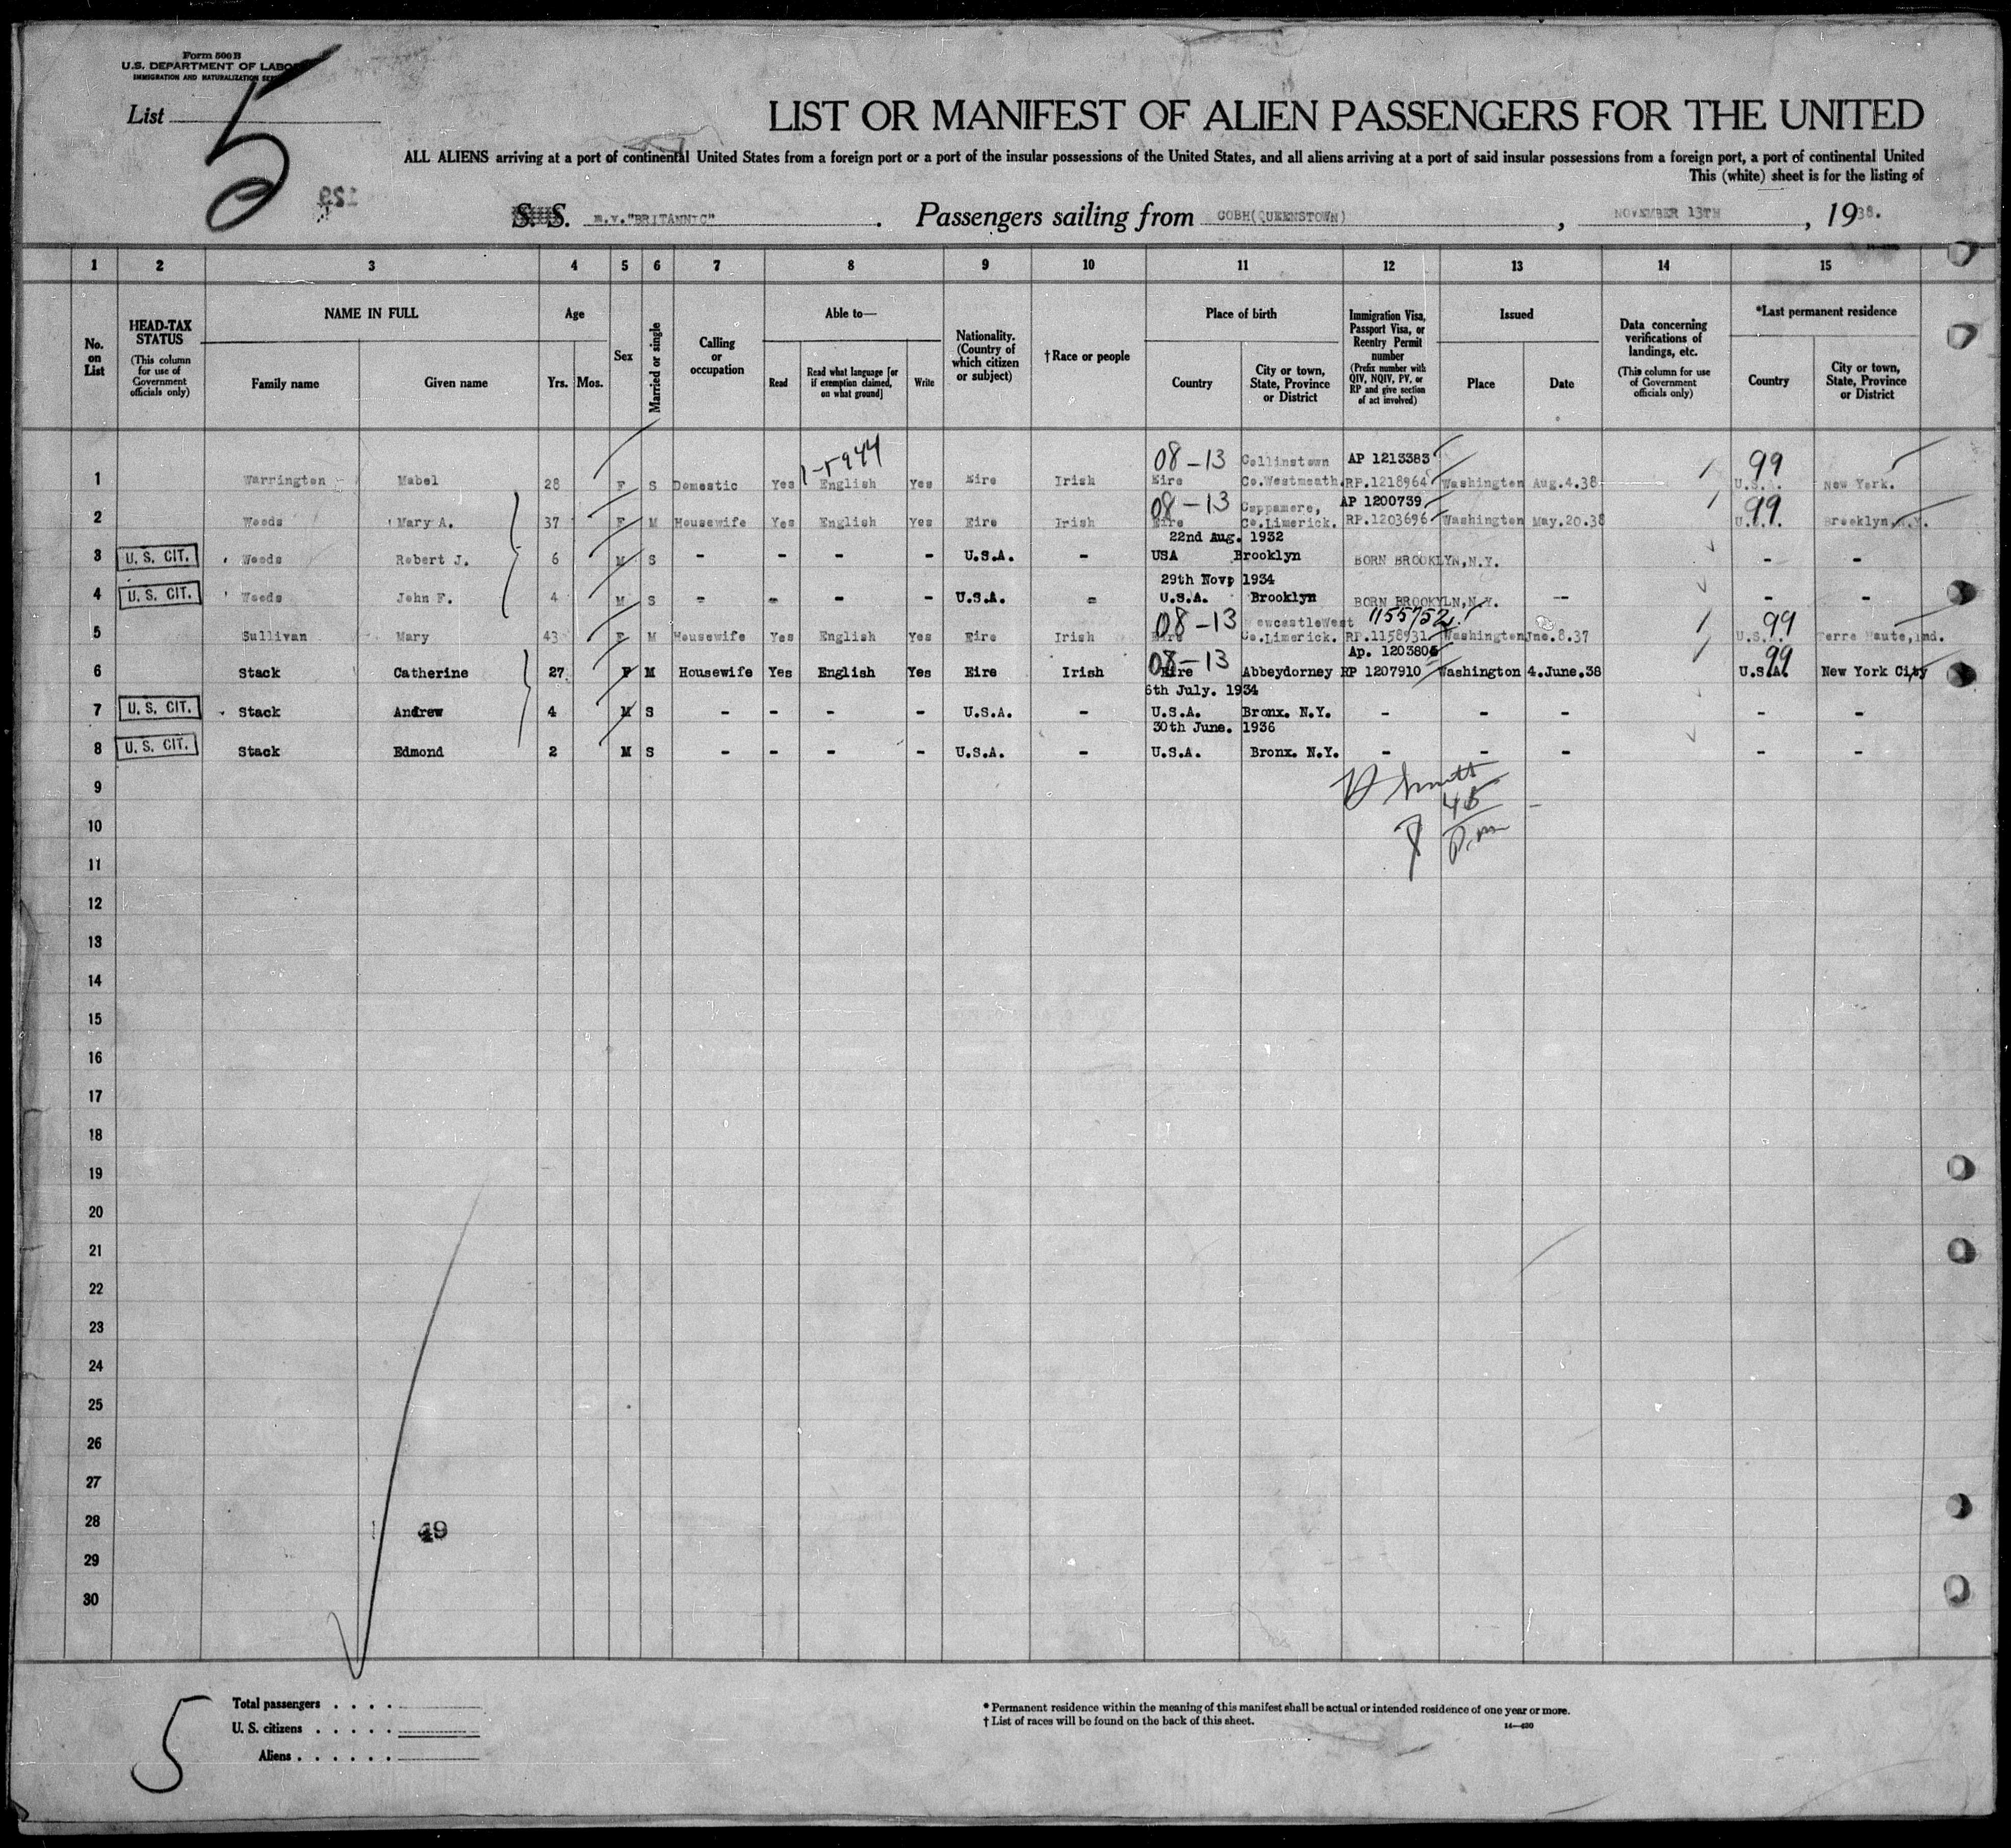 Form 500 B
U.S. DEPARTMENT OF LABOR
IMMIGRATION AND NATURALIZATION
List 5
LIST OR MANIFEST OF ALIEN PASSENGERS FOR THE UNITED
ALL ALIENS arriving at a port of continental United States from a foreign port or a port of the insular possessions of the United States, and all aliens arriving at a port of said insular possessions from a foreign port, a port of continental United
This (white) sheet is for the listing of
S. S. m.v."BRITANNIC". Passengers sailing from COBH(QUEENSTOWN), NOVEMBER 13TH, 1938.
1 2 3 4 5 6 7 8 9 10 11 12 13 14 15
No. on List
HEAD-TAX STATUS (This column for use of Government officials only)
NAME IN FULL Family name Given name
Age Yrs. Mos.
Sex
Married or single
Calling or occupation
Able to— Read Read what language [or if exemption claimed, on what ground] Write
Nationality. (Country of which citizen or subject)
† Race or people
Place of birth Country City or town, State, Province or District
Immigration Visa, Passport Visa, or Reentry Permit number (Prefix number with QIV, NQIV, PV, or RP and give section of act involved)
Issued Place Date
Data concerning verifications of landings, etc. (This column for use of Government officials only)
*Last permanent residence Country City or town, State, Province or District
08-13 Collinstown AP 1213383 99
1 Warrington Mabel 28 F S Domestic Yes English Yes Eire Irish Eire Co.Westmeath. RP.1218964 Washington Aug.4.38 U.S.A. New York.
08-13 Cappamore, AP 1200739 99
2 Woods Mary A. 37 F M Housewife Yes English Yes Eire Irish Eire Co.Limerick. RP.1203696 Washington May.20.38 U.S.A. Brooklyn,N.Y.
22nd Aug. 1932
3 U. S. CIT. Woods Robert J. 6 M S - - - - U.S.A. - USA Brooklyn BORN BROOKLYN,N.Y. - -
29th Nov, 1934
4 U. S. CIT. Woods John F. 4 M S - - - - U.S.A. - U.S.A. Brooklyn BORN BROOKYLN,N.Y. -- - -
08-13 NewcastleWest 1155752 99
5 Sullivan Mary 43 F M Housewife Yes English Yes Eire Irish Eire Co.Limerick. RP.1158931 Washington Jne.8.37 U.S.A. Terre Haute,Ind.
08-13 Ap. 1203805 99
6 Stack Catherine 27 F M Housewife Yes English Yes Eire Irish Eire Abbeydorney RP 1207910 Washington 4.June.38 U.S.A. New York City
6th July. 1934
7 U. S. CIT. Stack Andrew 4 M S - - - - U.S.A. - U.S.A. Bronx. N.Y. - - - - -
30th June. 1936
8 U. S. CIT. Stack Edmond 2 M S - - - - U.S.A. - U.S.A. Bronx. N.Y. - - - - -
9
10
11
12
13
14
15
16
17
18
19
20
21
22
23
24
25
26
27
28 49
29
30
5
Total passengers . . . .
U. S. citizens . . . . .
Aliens . . . . . .
* Permanent residence within the meaning of this manifest shall be actual or intended residence of one year or more.
† List of races will be found on the back of this sheet.
14—430